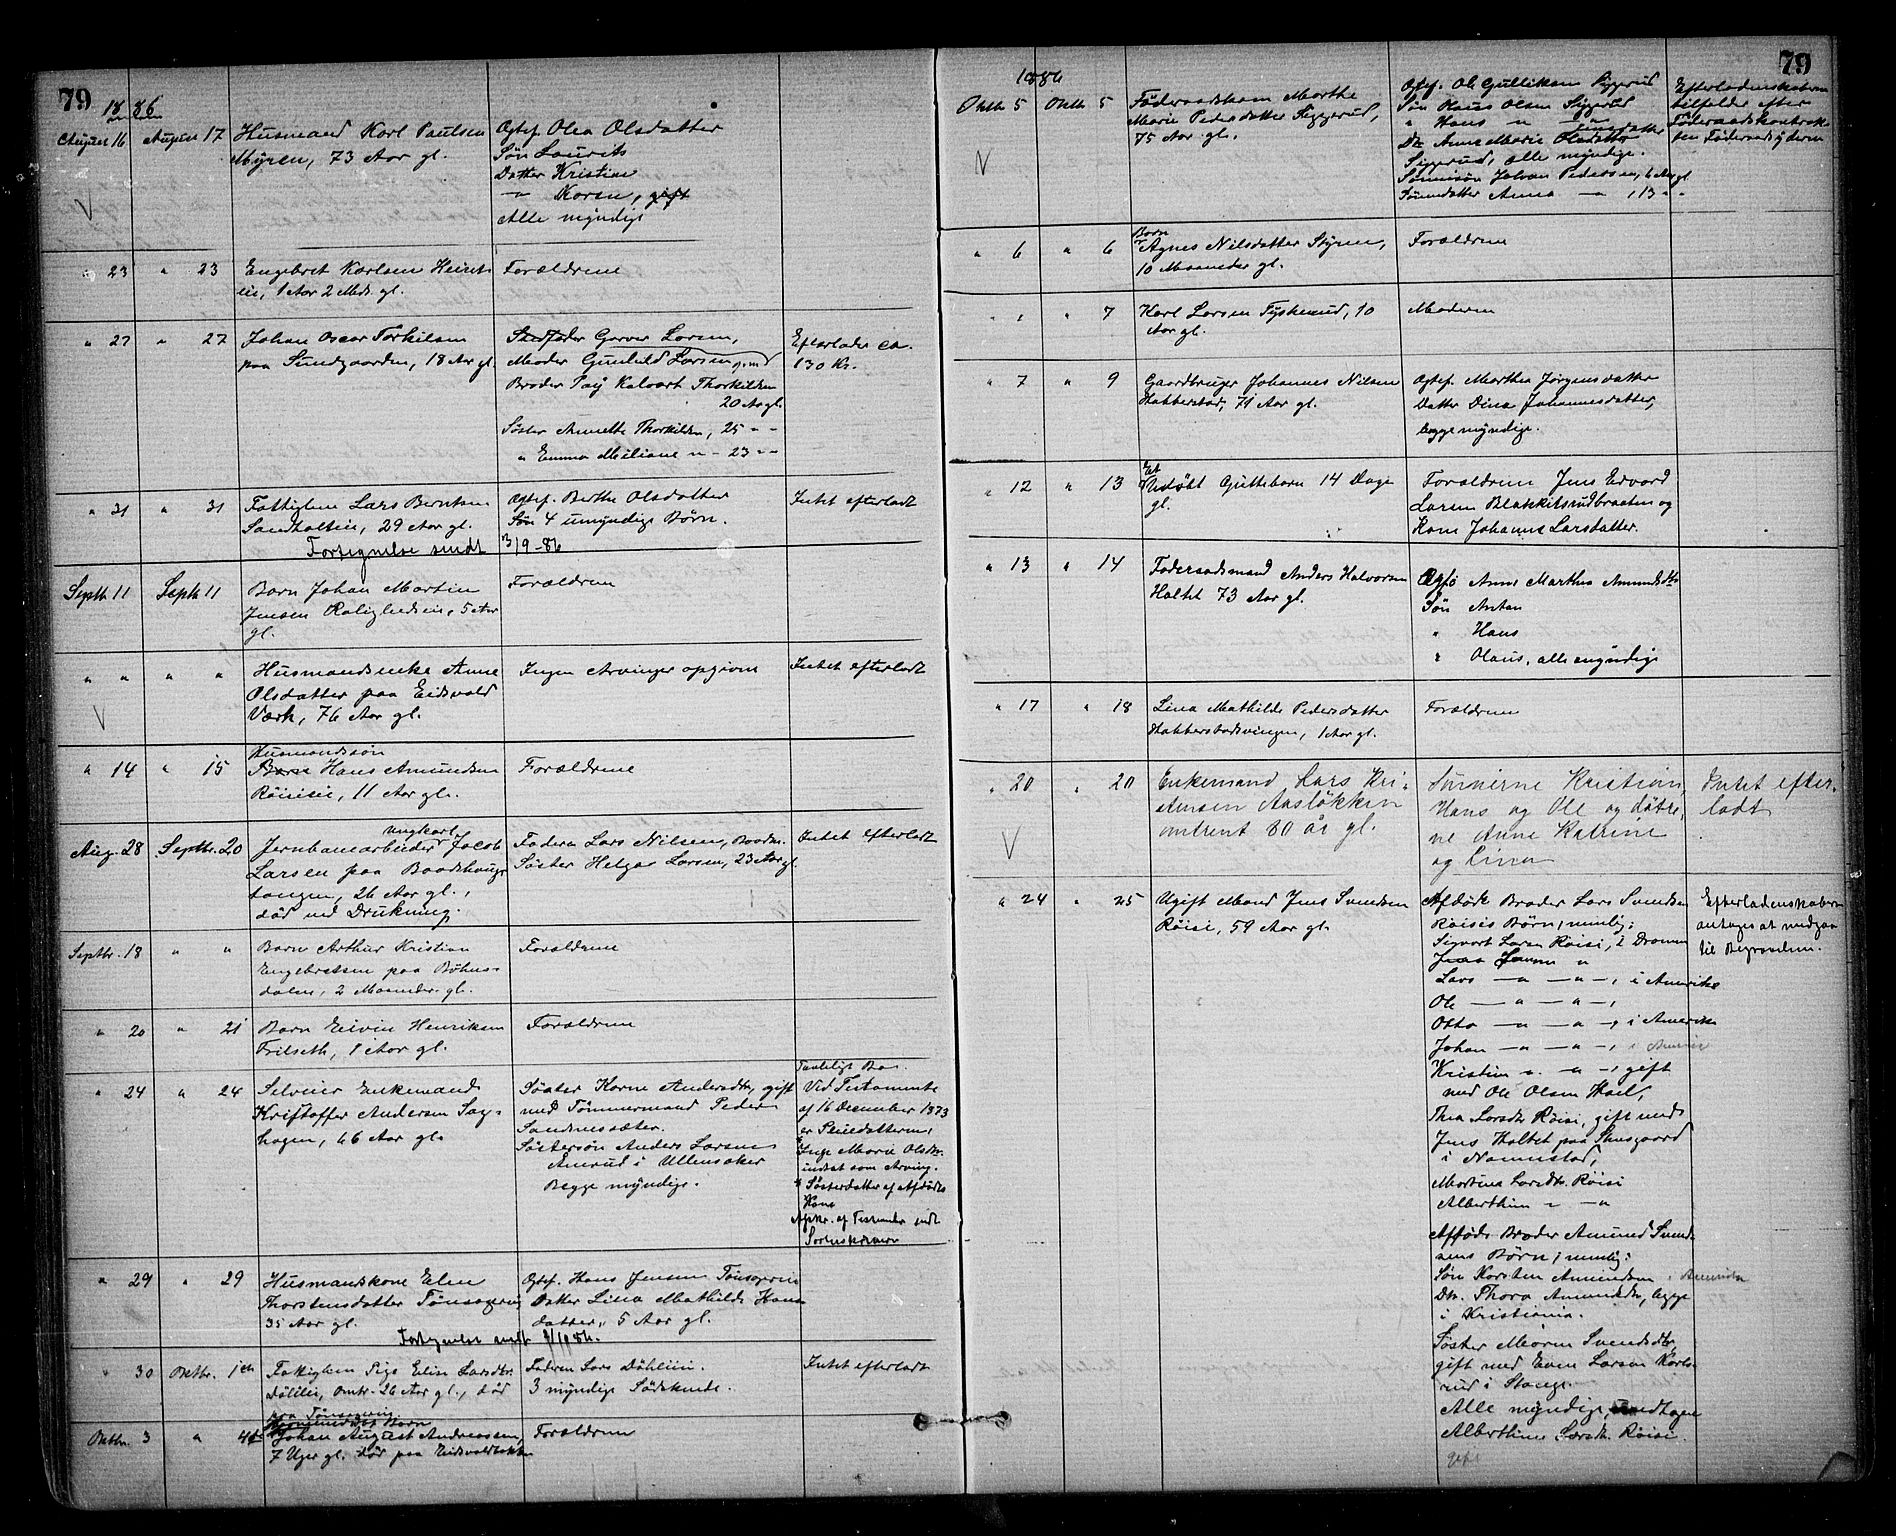 79
1886
August 16 August 17 Husmand Karl Paulsen
Myren, 73 Aar gl.
Ogtef. Olea Olsdatter
Søn Laurits
Datter Kristine
— Karen, gift
Alle myndige
" 23 " 23 Engebret Karlsen
1 Aar 2 Mdr. gl.
Forældrene
" 27 " 27 Johan Oscar Torkilsen
paa Sundgaarden, 18 Aar gl.
Stedfader Garver Larsen,
Moder Gunhild Larsen
Broder Kalvart Thorkildsen
20 Aar gl.
Søster Annette Thorkildsen, 25 " "
" Emma Miliane " - 23 " "
Efterlader ca.
130 Kr.
" 31 " 31 Fattiglem Lars Berntsen
29 Aar gl.
Ogtef. Berthe Olsdatter
Søn 4 umyndige Børn.
Intet efterladt
Fortegnelse sendt 3/9-86
Septb. 11 Septb. 11 Barn Johan Martin
Jensen Roligheden, 5 Aar
gl.
Forældrene
" " " " Husmandsenke Anne
Olsdatter paa Eidsvold
Værk, 76 Aar gl.
Ingen Arvinger opgivne
Intet efterladt
" 14 " 15 Husmandssøn
Barn Hans Amundsen
11 Aar gl.
Forældrene
Aug. 28 Septbr. 20 Ungkarl
Jernbanearbeider Jacob
Larsen paa Baadshaug-
tangen, 26 Aar gl.,
død ved Drukning.
Faderen Lars Nilsen,
Søster Helga Larsen, 23 Aar gl.
Intet efterladt
Septbr. 18 " " Barn Arthur Kristian
Engebretsen paa Bøhns-
dalen, 2 Maaneder gl.
Forældrene
" 20 " 21 Barn Eivin Henriksen
Frilseth, 1 Aar gl.
Forældrene
" 24 " 24 Selveier Enkemand
Kristoffer Andersen Sag-
hagen, 66 Aar gl.
Søster Karne Andersdtr, gift
med Tømmermand Peder
Sandnessæter.
Søstersøn Anders Larsen
Amrud i Ullensaker
Begge myndige.
Ved Testamente
af 16 December 1873
er Pleiedatteren,
Inge Marie Olsdtr.
indsat som Arving.
* Søsterdatter af Afdødes
Kone
Afskr. af Testamentet sendt
Sorenskriveren
" 29 " 29 Husmandskone Elen
Thorstensdatter
35 Aar gl.
Ogtef. Hans Jensen
Datter Lina Mathilde Hans-
datter, 5 Aar gl.
Fortegnelse sendt
" 30 Oktbr. 1ste Fattiglem Pige Elise Larsdtr.
omtr. 26 Aar gl., død
Faderen Lars
3 myndige Sødskende.
Intet efterladt
Oktbr. 3 " 4de Barn
Johan August Andreassen,
7 Uger gl. død paa
Forældrene
79
1886
Oktb. 5 Oktb. 5 Føderaadskone Marthe
Marie Pedersdatter Siggerud,
75 Aar gl.
Ogtef. Ole Gulliksen Siggerud
Søn Hans Olsen Siggerud
" Hans " "
Dtr. Anne Marie Olsdatter
Siggerud, alle myndige.
Sønnesøn Johan Pedersen, 6 Aar gl
Sønnedatter Anna — , 13 " "
Efterladenskaberne
tilfalder efter
Føderaadskontrak-
ten Føderaadsyderen
" 6 " 6 Barn
Agnes Nilsdatter Styren,
10 Maaneder gl.
Forældrene
" " " 7 Karl Larsen Tyskerud, 10
Aar gl.
Moderen
" 7 " 9 Gaardbruger Johannes Nilsen
Habberstad, 71 Aar gl.
Ogtef. Marthea Jørgensdatter
Datter Dina Johannesdatter,
begge myndige.
" 12 " 13 Et
Udøbt Guttebarn 14 Dage
gl.
Forældrene Jens Edvard
Larsen Blakkisrudbraaten og
Kone Johanne Larsdatter.
" 13 " 14 Føderaadsmand Anders Halvorsen
Haltet 73 Aar gl.
Ogtef. Anne Marthea Amundsdtr
Søn Anton
" Hans
" Olaus, alle myndige
" 17 " 18 Lina Mathilde Pedersdatter
Habberstadsvingen, 1 Aar gl.
Forældrene
" 20 " 20 Enkemand Lars Kri-
stensen Aasløkken
omtrent 80 år gl.
Sønnerne Kristian,
Hans og Ole og døtre-
ne Anne Katrine
og Lina
Intet efter-
ladt
" 24 " 25 Ugift Mand Jens Svendsen
Røisi, 59 Aar gl.
Afdøde Broder Lars Svendsen
Røisis Børn, nemlig:
Sigvart Larsen Røisi, i Drammen
Lars — " — " —, i Amerika
Ole — " — " —,
Otto — " — " —, i Amerika
Johan — " — " —, i Amerika
Kristine " — " —, gift
med Ole Olsen Hoel,
Thea Larsdtr Røisi, gift med
Jens Haltet paa
i Nannestad,
Martina Larsdtr. Røisi
Alberthine " — "
Afdøde Broder Amund Svend-
sens Børn, nemlig:
Søn Karsten Amundsen i Amerika
Dtr. Thora Amundsdtr, begge
i Kristiania.
Søster Maren Svendsdtr,
gift med Even Larsen
i Stange.
Alle myndige, undtagen
Alberthine Larsdtr. Røisi.
Efterladenskaberne
antages at medgaa
til Begravelsen.